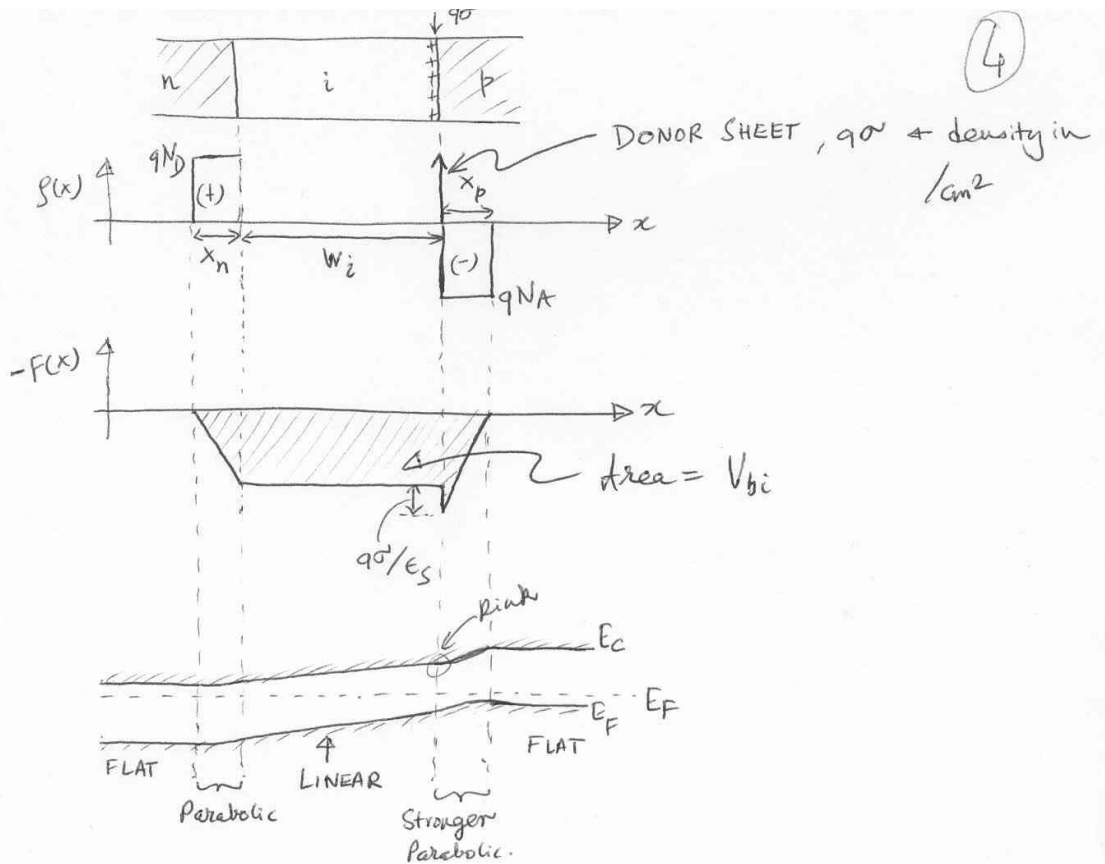 qσ
4
n i p
DONOR SHEET, qσ ← density in
/cm²
ρ(x)
qN_D
(+)
x_p
x
x_n
W_i
(-)
qN_A
-F(x)
x
Area = V_bi
qσ/ϵ_s
kink
E_C
E_F
E_F
FLAT
LINEAR
FLAT
Parabolic
Stronger
Parabolic.